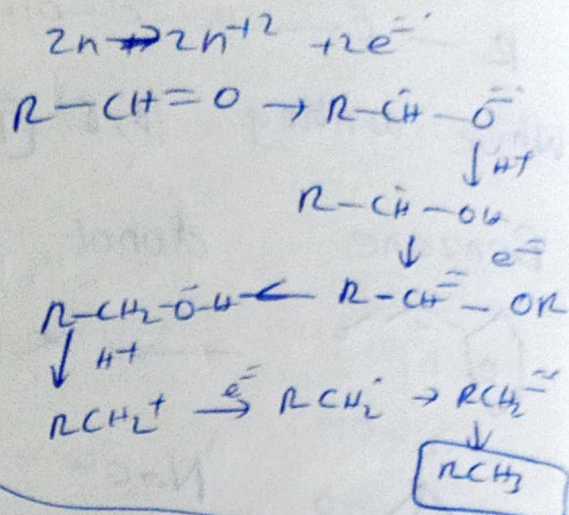 2n → 2n⁺² + 2e⁻
R – CH = O → R – ĊH – O⁻
↓ H⁺
R – ĊH – OH
↓ e⁻
R – CH₂ – O – H ← R – CH⁻ – OR
↓ H⁺
RCH₂⁺ –e⁻→ RCH₂˙ → RCH₂⁻
↓
RCH₃